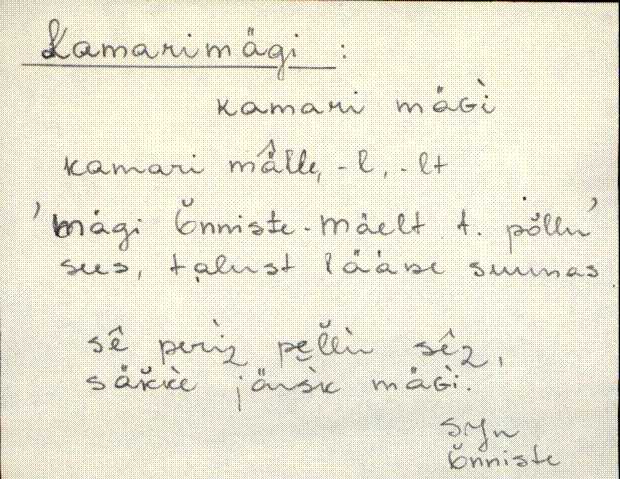 Kamarimägi :
kamari mäGì
kamari mä̂lle, -l, -lt
'mägi Õnniste-Mäelt t. põllu'
sees, talust lääne suunas
sê periz pe̮llù sêz,
säkkè järsk mäGì.
Syn
Õnniste